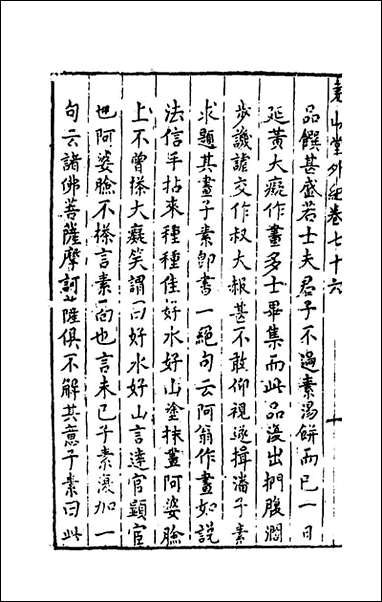 堯山堂外紀卷七十六
十
品饌甚盛若士夫君子不過素湯餅而已一日
延黃大癡作畫多士畢集而此品復出捫腹潤
步譏謔交作叔大赧甚不敢仰視遂揖潘子素
求題其畫子素即書一絕句云阿翁作畫如說
法信手拈來種種佳好水好山塗抹盡阿婆臉
上不曾搽大癡笑謂曰好水好山言達官顯宦
也阿婆臉不搽言素面也言未已子素復加一
句云諸佛菩薩摩訶薩俱不解其意子素曰此